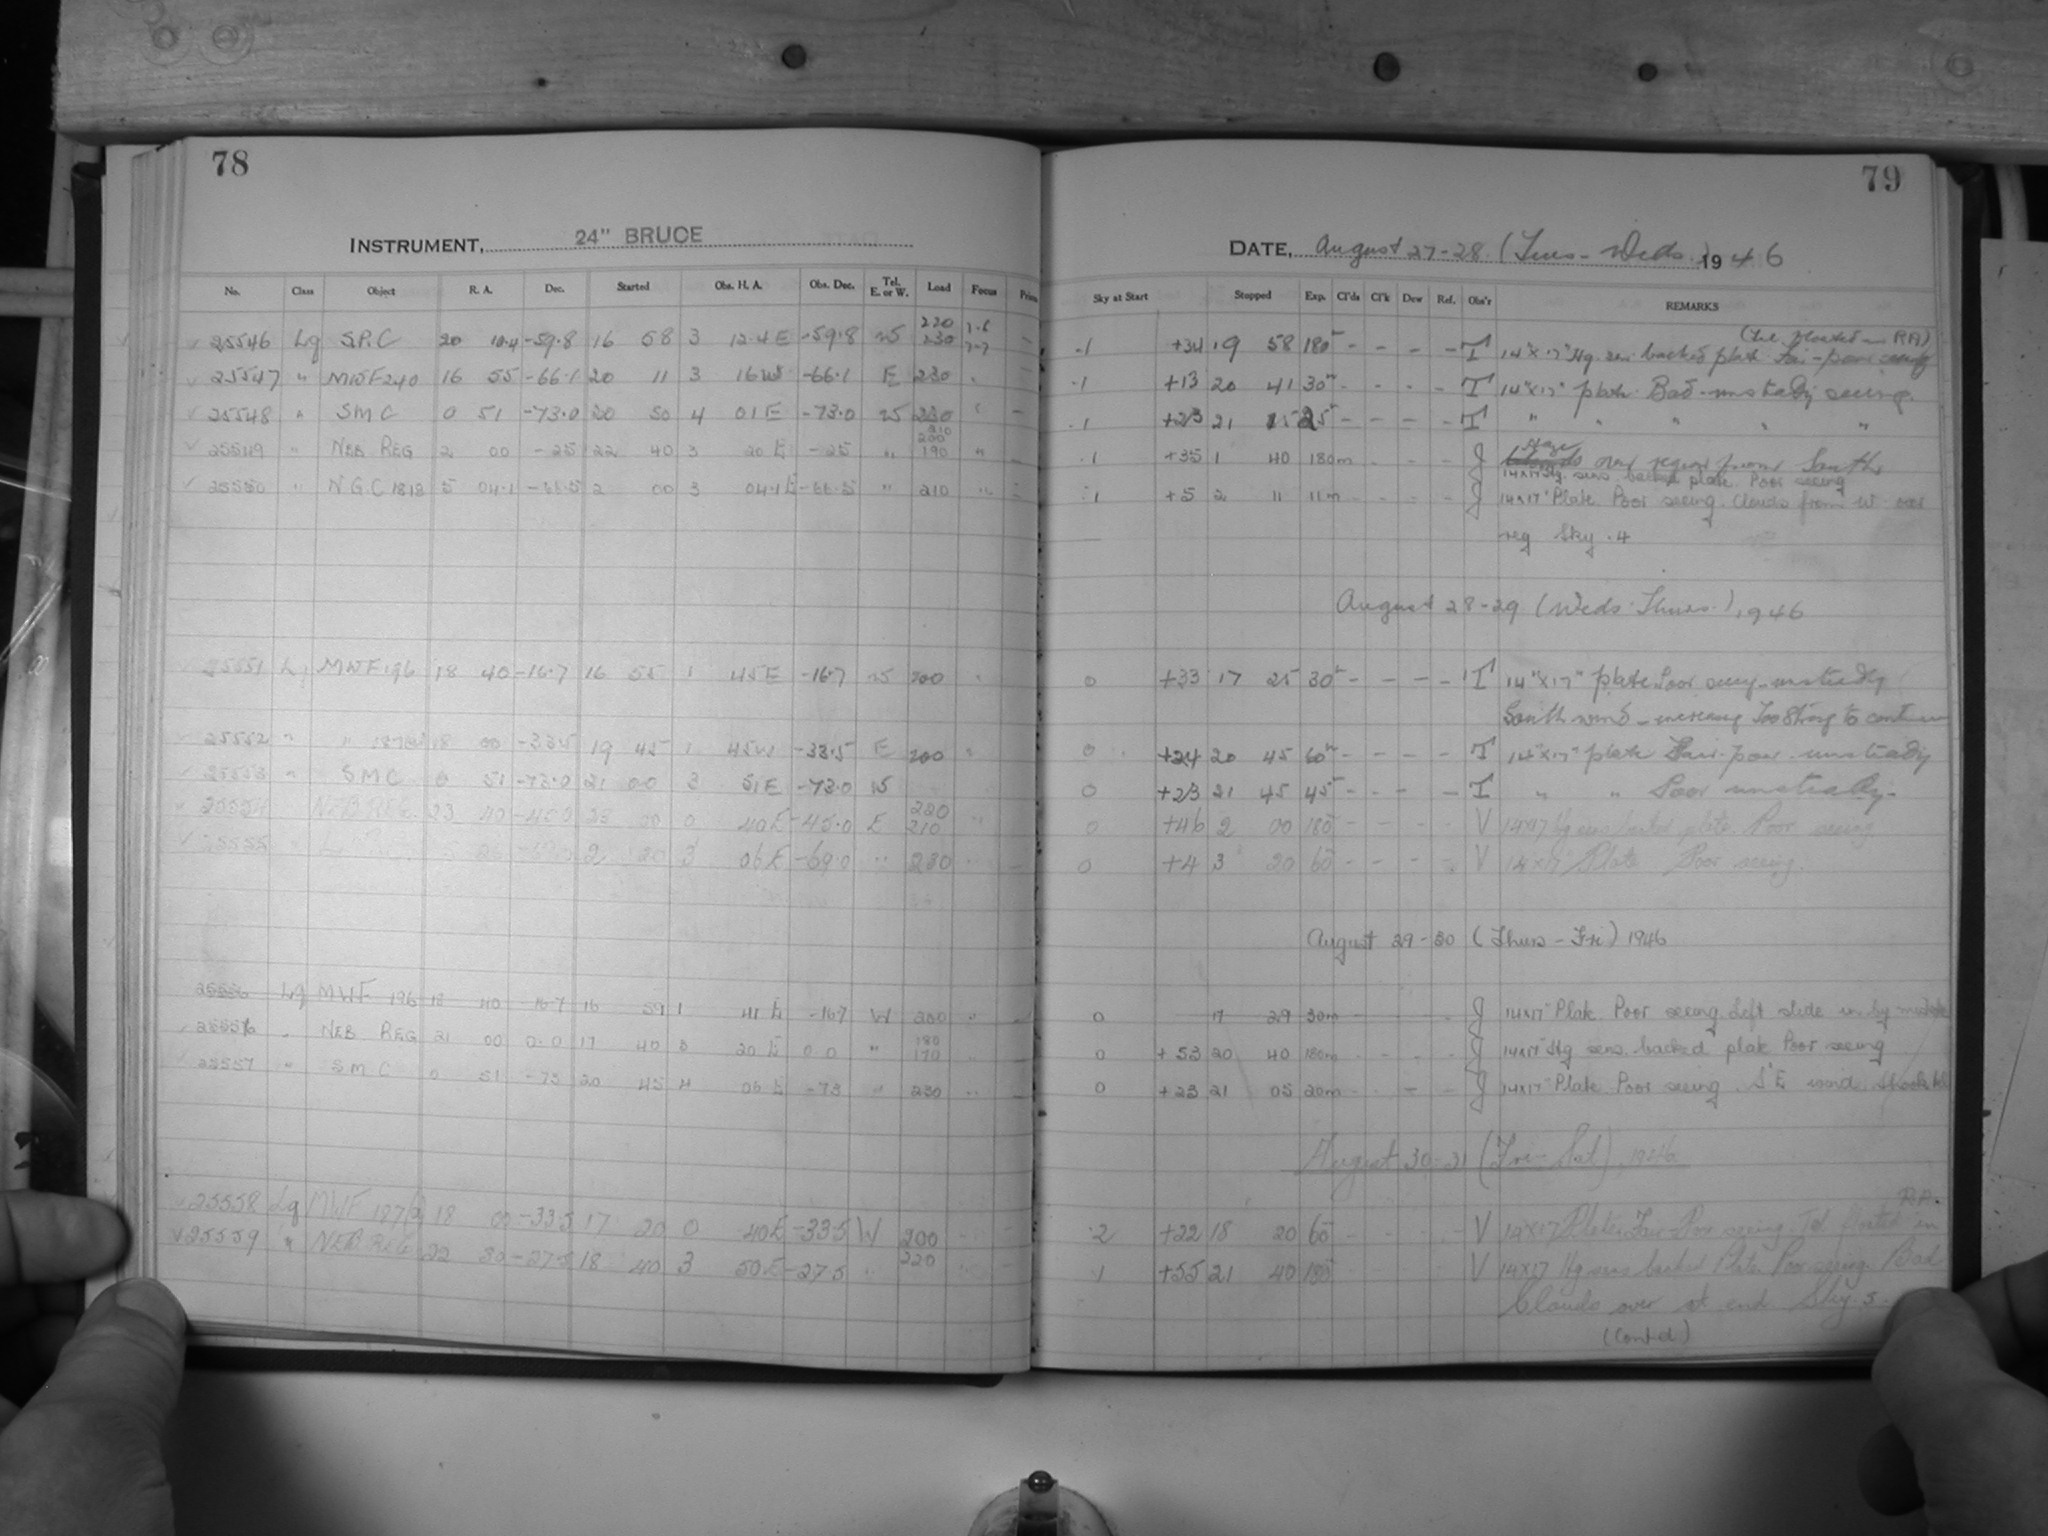 78
INSTRUMENT, 24" BRUCE
No. Class Object R. A. Dec. Started Obs. H. A. Obs. Dec. Tel. E. or W. Load Focus
25546 Lg S.P.C 20 10.4 -59.8 16 58 3 12.4 E -59.8 W 220 230
25547 " MWF240 16 55 -66.1 20 11 3 16W -66.1 E 230
25548 " SMC 0 51 -73.0 20 50 4 01E -73.0 W 230
25549 " NEB REG 2 00 -25 22 40 3 20 E -25 " 210 200 190 "
25550 " N.G.C 1818 5 04.1 -66.5 2 00 3 04.1E -66.5 " 210 "
25551 MWF 196 18 40 -16.7 16 55 1 45E -16.7 W 200
25552 " 18 00 -33.5 19 45 1 45W -33.5 E 200
25553 " SMC 0 51 -73.0 21 00 3 51E -73.0 W
25554 NEB REG. 23 40 -45.0 23 00 0 40E -45.0 E 220 210
25555 2 20 3 06E -69.0 " 230
25556 Lg MWF 196 18 40 -16.7 16 59 1 41 E -16.7 W 200
25556 " NEB REG 21 00 0.0 17 40 3 20 E 0.0 " 180 170
25557 " SMC 0 51 -73 20 45 4 06 E -73 " 230
25558 Lg MWF 18 00 -33.5 17 20 0 40E -33.5 W 200
25559 " NEB REG 22 30 -27.5 18 40 3 50E -27.5 220
79
DATE, August 27-28. (Tues-Weds.) 1946
Sky at Start Stopped Exp. Cl'ds Cl'k Dew Ref. Obs'r REMARKS
(Tel. floated in RA)
.1 +34 19 58 180 - - - - T 14"x17" Hg. sen. backed plate. Fair-poor seeing
.1 +13 20 41 30m - - - - T 14"x17" plate. Bad-unsteady seeing.
.1 +23 21 15 25 - - - - T " " " " "
Haze
.1 +35 1 40 180m - - - J over region from South
14x17 Hg. sens. backed plate. Poor seeing
.1 +5 2 11 11m - - - J 14x17" Plate Poor seeing. Clouds from W over
reg Sky .4
August 28-29 (Weds-Thurs.), 1946
0 +33 17 25 30m - - - - T 14"x17" plate Poor seeing-unsteady
South wind - increasing Too Strong to continue
0 +24 20 45 60m - - - - T 14"x17" plate Fair-poor-unsteady
0 +23 21 45 45 - - - - T " " Poor unsteady-
0 +46 2 00 180 - - - - V 14x17 Hg sens backed plate. Poor seeing
0 +4 3 20 60 - - - V 14x17 Plate Poor seeing.
August 29-30 (Thurs-Fri) 1946
0 17 29 30m J 14x17" Plate Poor seeing Left slide in by mistake
0 +53 20 40 180m - - - - J 14x17" Hg sens. backed plate Poor seeing
0 +23 21 05 20m - - - J 14x17" Plate Poor seeing S'E wind
August 30-31 (Fri-Sat), 1946
R.A.
.2 +22 18 20 60 - - - - V 14x17 Plate. Fair-Poor seeing. Tel. floated in
.1 +55 21 40 180 V 14x17 Hg sens backed Plate. Poor seeing. Bad
Clouds over at end Sky .5.
(Cont'd)